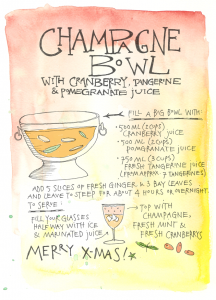 CHAMPAGNE
BOWL
WITH CRANBERRY, TANGERINE
& POMEGRANATE JUICE
FILL A BIG BOWL WITH:
• 500 ML (2 CUPS)
CRANBERRY JUICE
• 500 ML (2 CUPS)
POMEGRANATE JUICE
• 750 ML (3 CUPS)
FRESH TANGERINE JUICE
(FROM APPROX. 7 TANGERINES)
ADD 5 SLICES OF FRESH GINGER & 3 BAY LEAVES
AND LEAVE TO STEEP FOR ABOUT 4 HOURS OR OVERNIGHT.
TO SERVE:
FILL YOUR GLASSES
HALF WAY WITH ICE
& MARINATED JUICE
TOP WITH
CHAMPAGNE,
FRESH MINT &
FRESH CRANBERRIES
MERRY X-MAS!